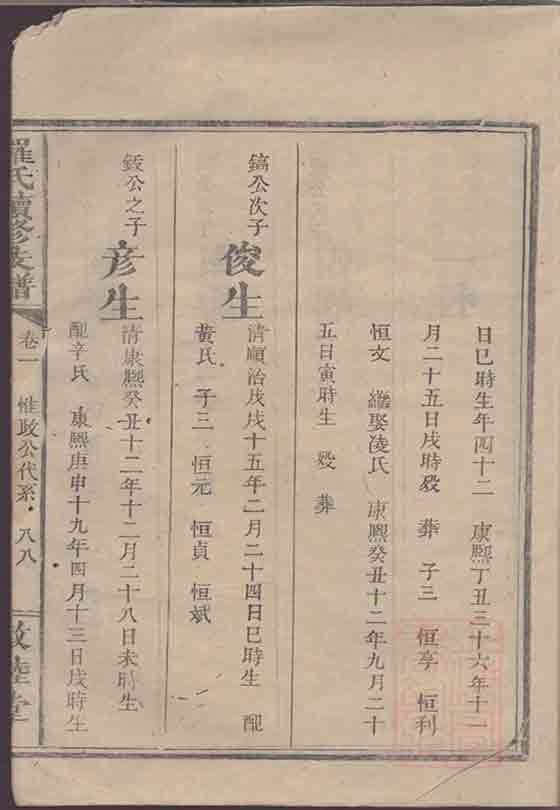 日巳時生年四十二 康熙丁丑三十六年十一
月二十五日戌時殁 葬 子三 恒亨 恒利
恒文 繼娶凌氏 康熙癸丑十二年九月二十
五日寅時生 殁 葬
鎬公次子
俊生
清順治戊戌十五年二月二十四日巳時生 配
黃氏 子三 恒元 恒貞 恒斌
鋑公之子
彦生
清康熙癸丑十二年十二月二十八日未時生
配辛氏 康熙庚申十九年四月十三日戌時生
羅氏續修支譜
卷一 惟政公代系 八八
敦睦堂